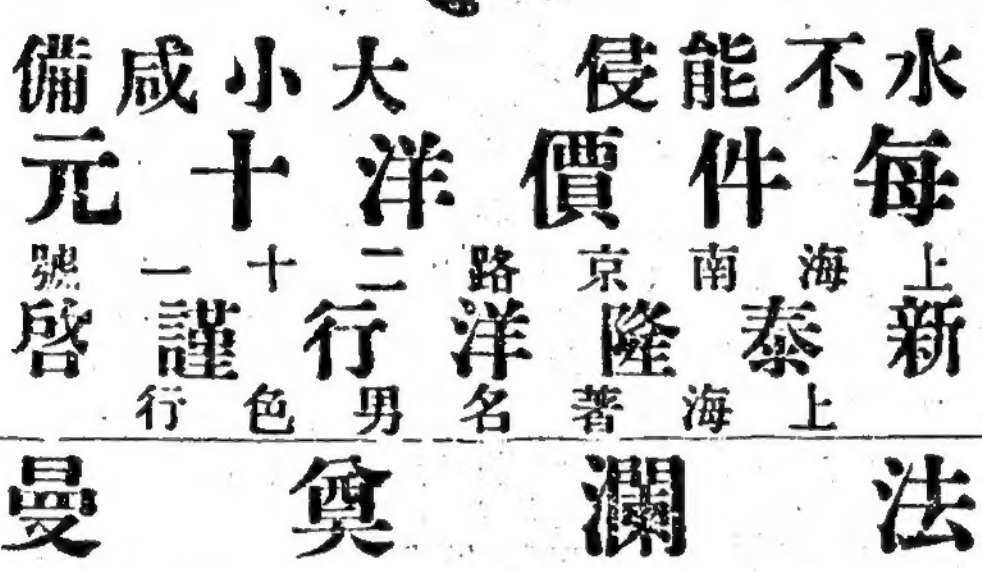 水不能侵 大小咸備
每件價洋十元
上海南京路二十一號
新泰隆洋行謹啓
上海著名男色行
法瀾奠曼